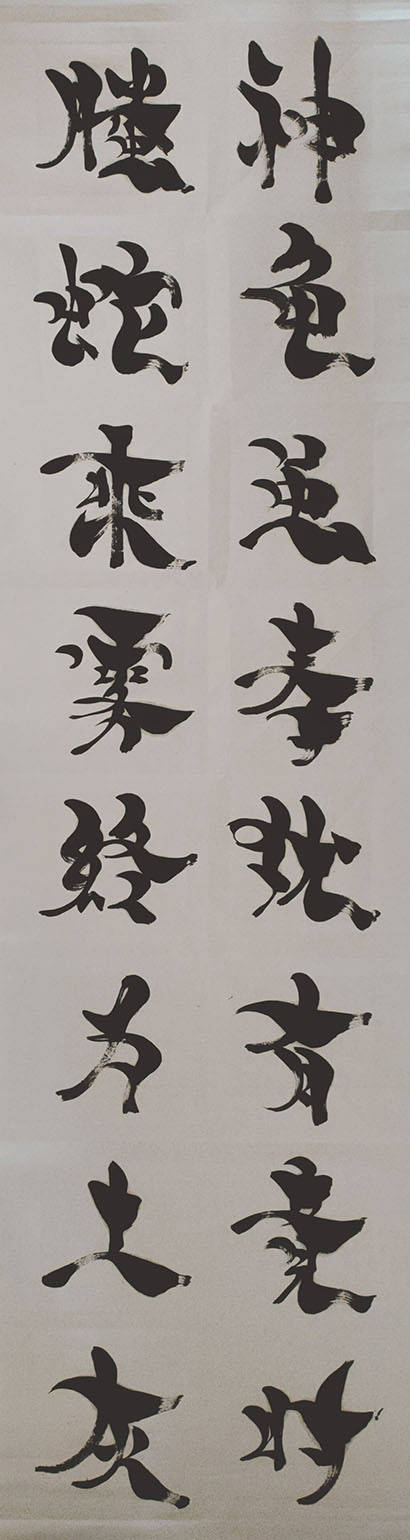 神龟虽寿犹有竟时
螣蛇乘雾終为土灰